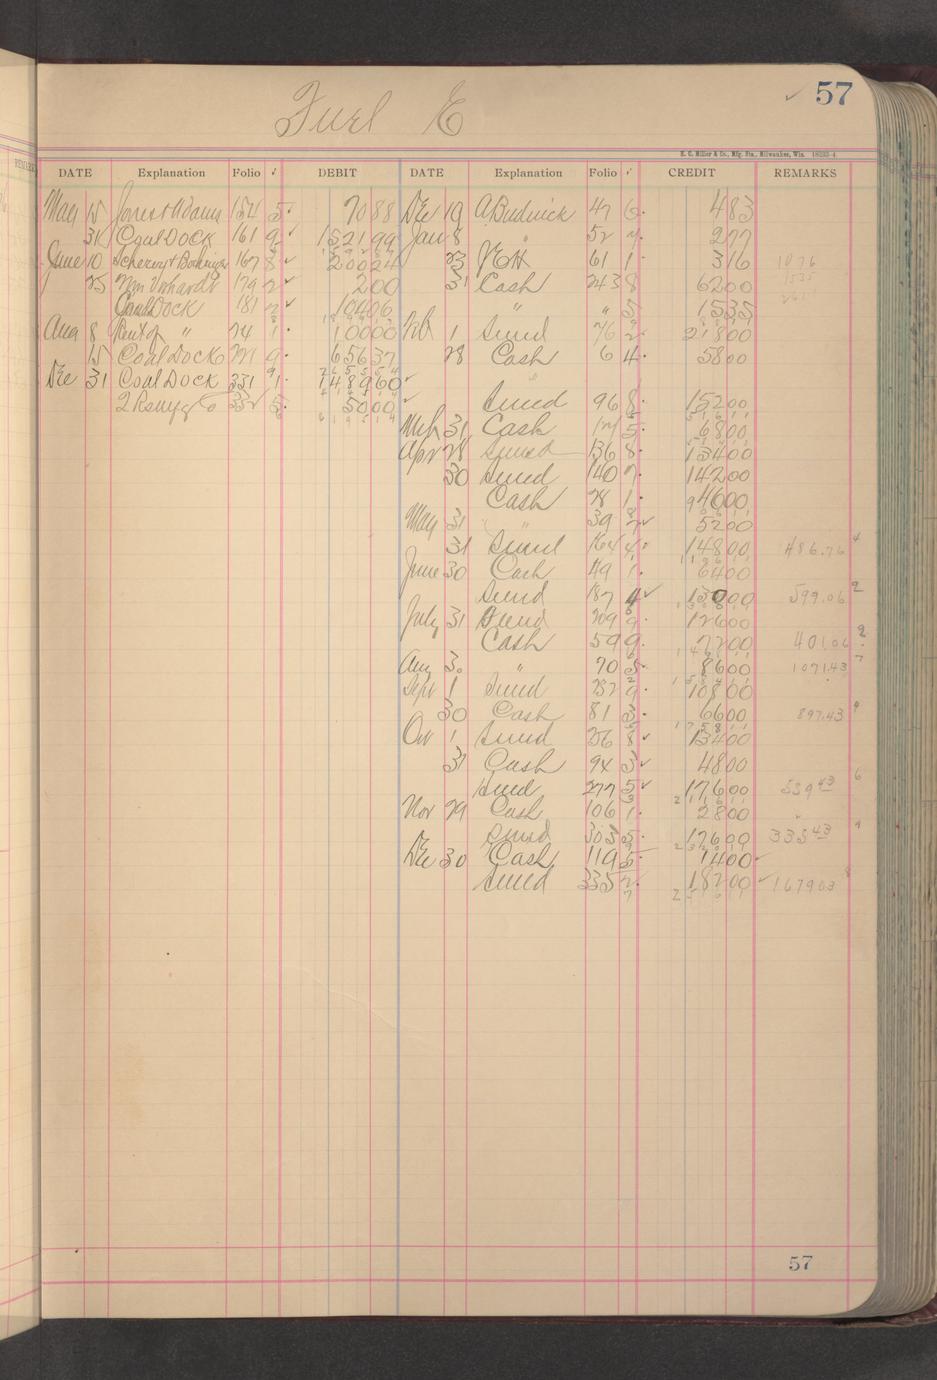 57
Fuel E
E. C. Miller & Co., Mfg. Sta., Milwaukee, Wis. 18233-4
DATE Explanation Folio ✓ DEBIT DATE Explanation Folio ✓ CREDIT REMARKS
May 15 Jones & Adams 154 5 70 88 Dec 19 A Budnick 47 6 4 83
31 Coal Dock 161 9 1521 99 Jan 8 " 52 2 77
June 10 167 8 200 24 23 61 1 3 16 10 76
25 Wm 179 2 2 00 31 Cash 243 8 62 00
Coal Dock 181 104 06 " " 5 15 35
Aug 8 Rent of " 1 100 00 Feb 1 Sund 76 2 218 00
15 Coal Dock 9 656 37 28 Cash 6 4 58 00
Dec 31 Coal Dock 331 1 1489 60
332 5 50 00 Sund 96 8 152 00
Mch 31 Cash 5 68 00
Apr 28 Sund 136 8 134 00
30 Sund 140 7 142 00
Cash 28 1 46 00
May 31 " 39 52 00
31 Sund 164 4 148 00 486.76
June 30 Cash 49 1 64 00
Sund 187 4 130 00 599.06
July 31 Sund 209 9 126 00
Cash 59 9 72 00 401.06
Aug 30 " 70 5 86 00 1071.43
Sept 1 Sund 232 9 108 00
30 Cash 81 3 66 00 897.43
Oct 1 Sund 256 8 134 00
31 Cash 94 3 48 00
Sund 277 5 176 00 539 43
Nov 29 Cash 106 1 28 00
Sund 303 5 176 00 335 43
Dec 30 Cash 119 5 14 00
Sund 335 2 182 00 1679 03
57